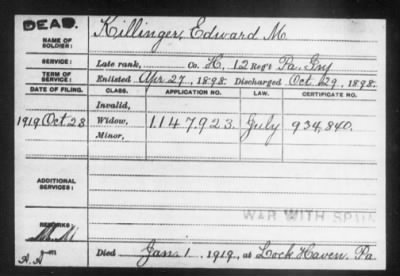 DEAD.
NAME OF SOLDIER: Killinger, Edward M.
SERVICE: Late rank, Co. H, 12 Reg't Pa. Inf
TERM OF SERVICE: Enlisted Apr 27, 1898. Discharged Oct. 29, 1898.
DATE OF FILING. CLASS. APPLICATION NO. LAW. CERTIFICATE NO.
Invalid,
1919 Oct 28 Widow, 1.147.923. July 934,840.
Minor,
ADDITIONAL SERVICES:
WAR WITH SPAIN
REMARKS:
Died Jan. 1 1919, at Lock Haven. Pa.